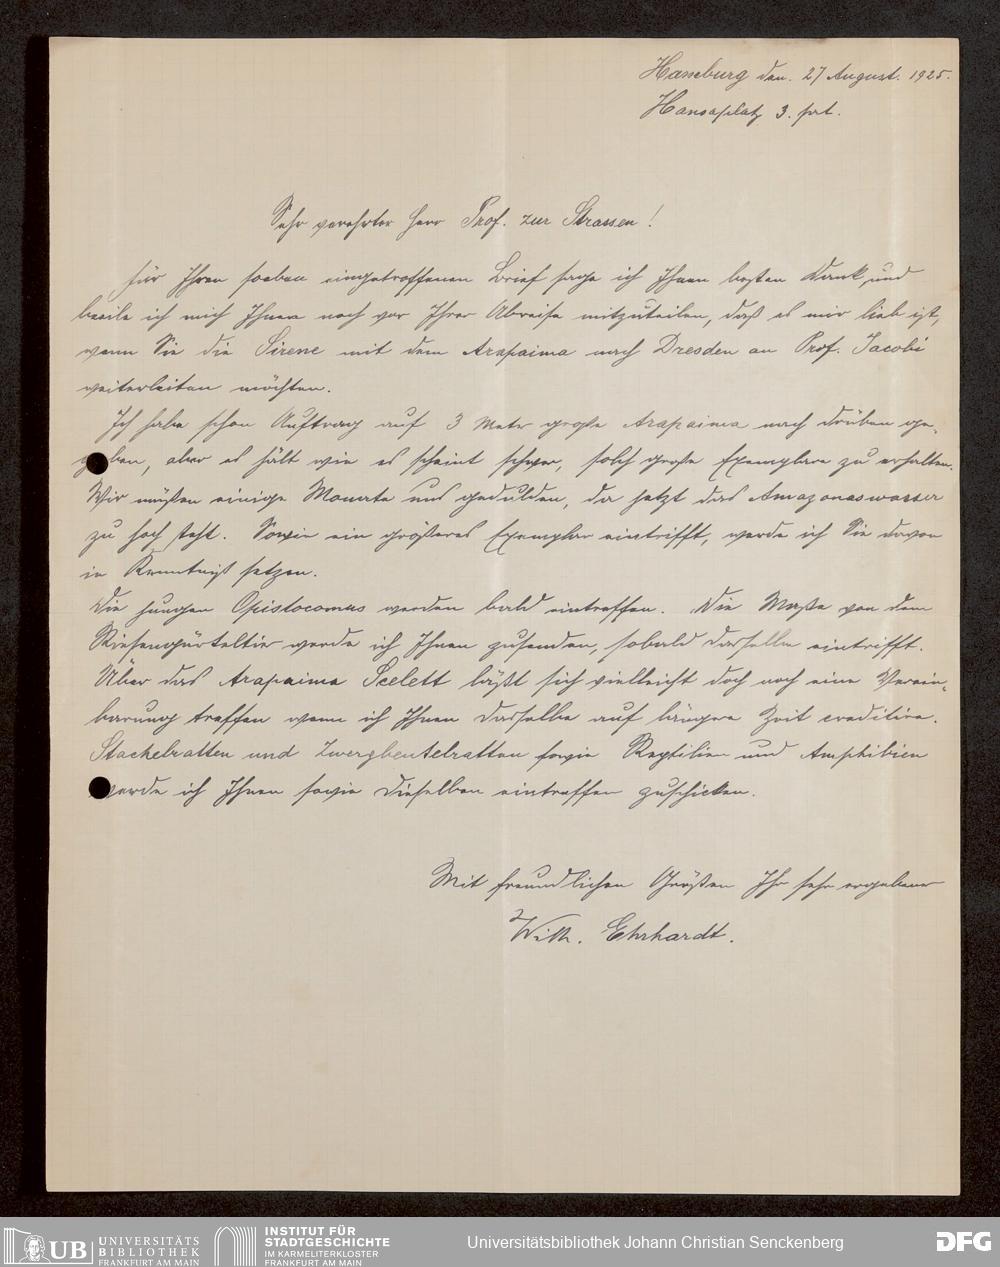 Hamburg den. 27 August. 1925.
Hansaplatz 3. prt.
Sehr verehrter Herr Prof. zur Strassen!
Für Ihren soeben eingetroffenen Brief sage ich Ihnen besten Dank, und
beeile ich mich Ihnen noch vor Ihrer Abreise mitzuteilen, daß es mir lieb ist,
wenn Sie die Sirene mit dem Arapaima nach Dresden an Prof. Jacobi
weiterleiten möchten.
Ich habe schon Auftrag auf 3 Meter große Arapaima nach drüben ge-
geben, aber es hält wie es scheint schwer, solch große Exemplare zu erhalten.
Wir müßen einige Monate uns gedulden, da jetzt das Amazonaswasser
zu hoch steht. Sowie ein größeres Exemplar eintrifft, werde ich Sie davon
in Kenntniß setzen.
Die jungen Opistocomus werden bald eintreffen. Die Maße von dem
Riesengürteltier werde ich Ihnen zusenden, sobald dasselbe eintrifft.
Über das Arapaima Scelett läßt sich vielleicht doch noch eine Verein-
barung treffen wenn ich Ihnen dasselbe auf längere Zeit creditire.
Stachelratten und Zwergbeutelratten sowie Reptilien und Amphibien
werde ich Ihnen sowie dieselben eintreffen zuschicken.
Mit freundlichen Grüßen Ihr sehr ergebener
Wilh. Ehrhardt.
UB UNIVERSITÄTS
BIBLIOTHEK
FRANKFURT AM MAIN
INSTITUT FÜR
STADTGESCHICHTE
IM KARMELITERKLOSTER
FRANKFURT AM MAIN
Universitätsbibliothek Johann Christian Senckenberg
DFG